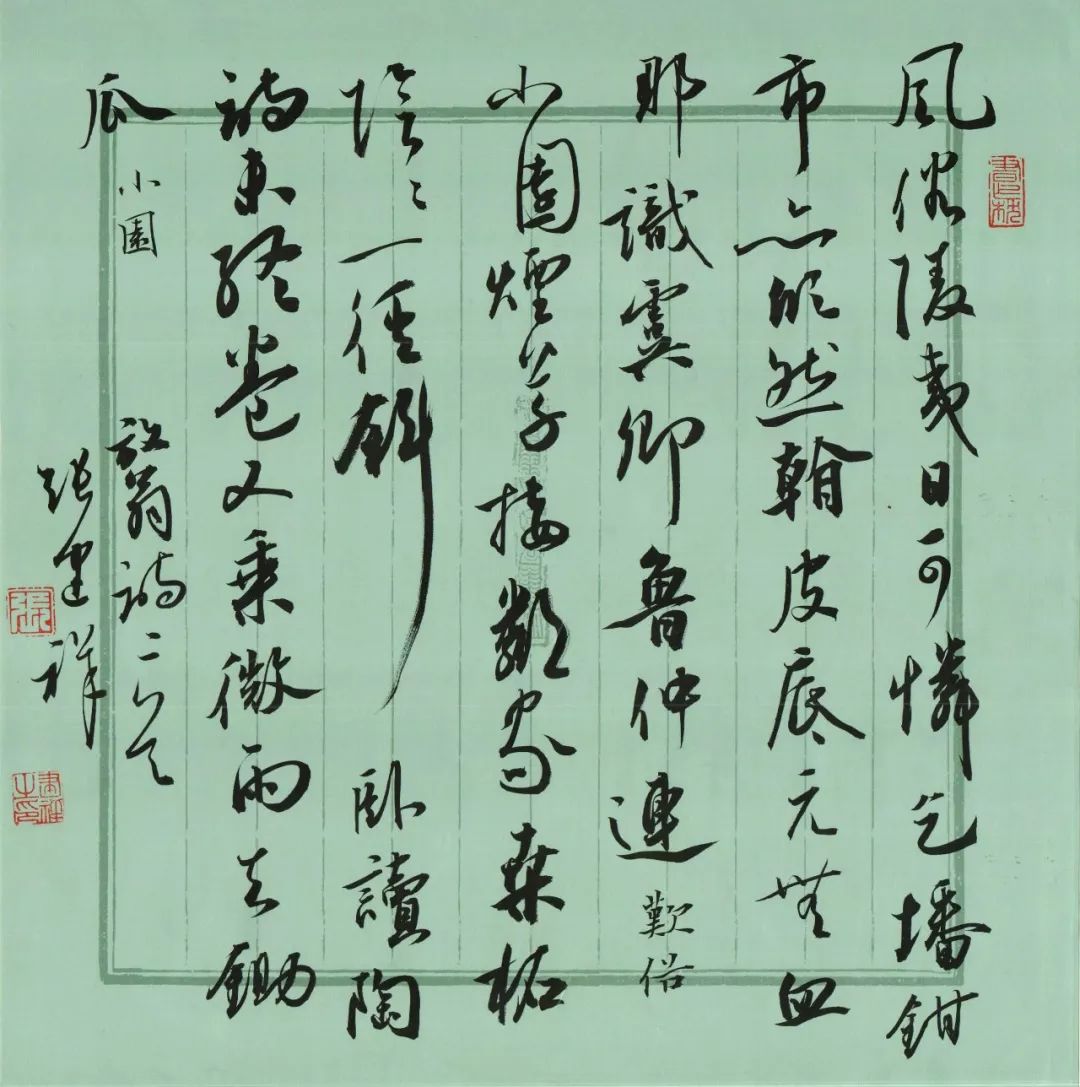 風俗陵夷日可憐乞墦鉗
市亦欣然翰皮底元無血
那識虞卿魯仲連 歎俗
小園煙草接鄰家桑柘
陰々一徑斜臥讀陶
詩未終卷又乘微雨去鋤
瓜 小園
放翁詩二首
張建祥
張
建祥之印